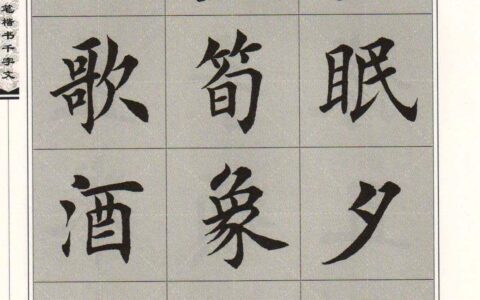 眠夕
筍象
歌酒
笔楷书千字文